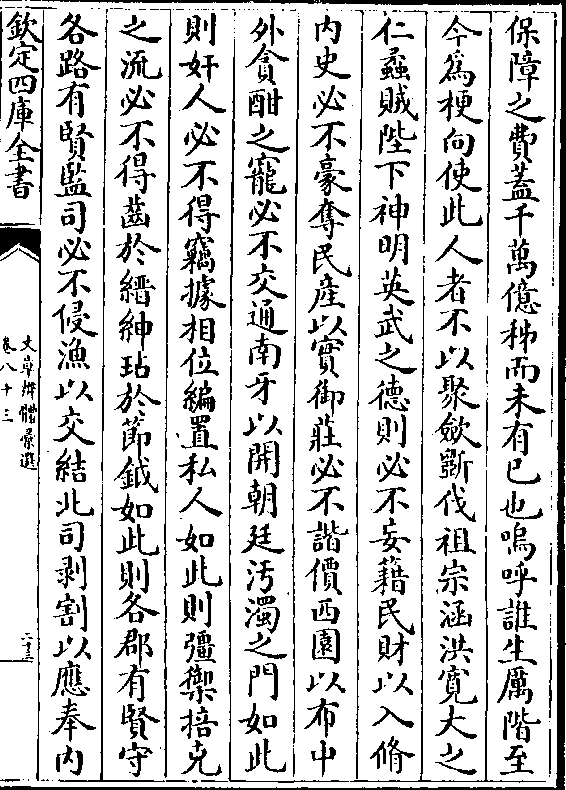 保障之費蓋千萬億秭而未有已也嗚呼誰生厲階至
今爲梗向使此人者不以聚斂斵伐祖宗涵洪寛大之
仁蟊賊陛下神明英武之德則必不妄籍民財以入脩
内史必不豪奪民産以實御莊必不諧價西園以布中
外貪酣之寵必不交通南牙以開朝廷汚濁之門如此
則奸人必不得竊據相位編置私人如此則彊禦掊克
之流必不得齒於縉紳玷於節鉞如此則各郡有賢守
各路有賢監司必不侵漁以交結北司剥割以應奉内
欽定四庫全書
文章辨體彚選
卷八十三
二十三